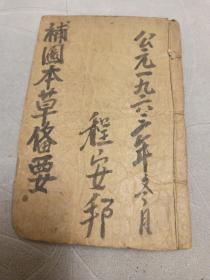 公元一九六三年六月
程安邦
補圖本草備要